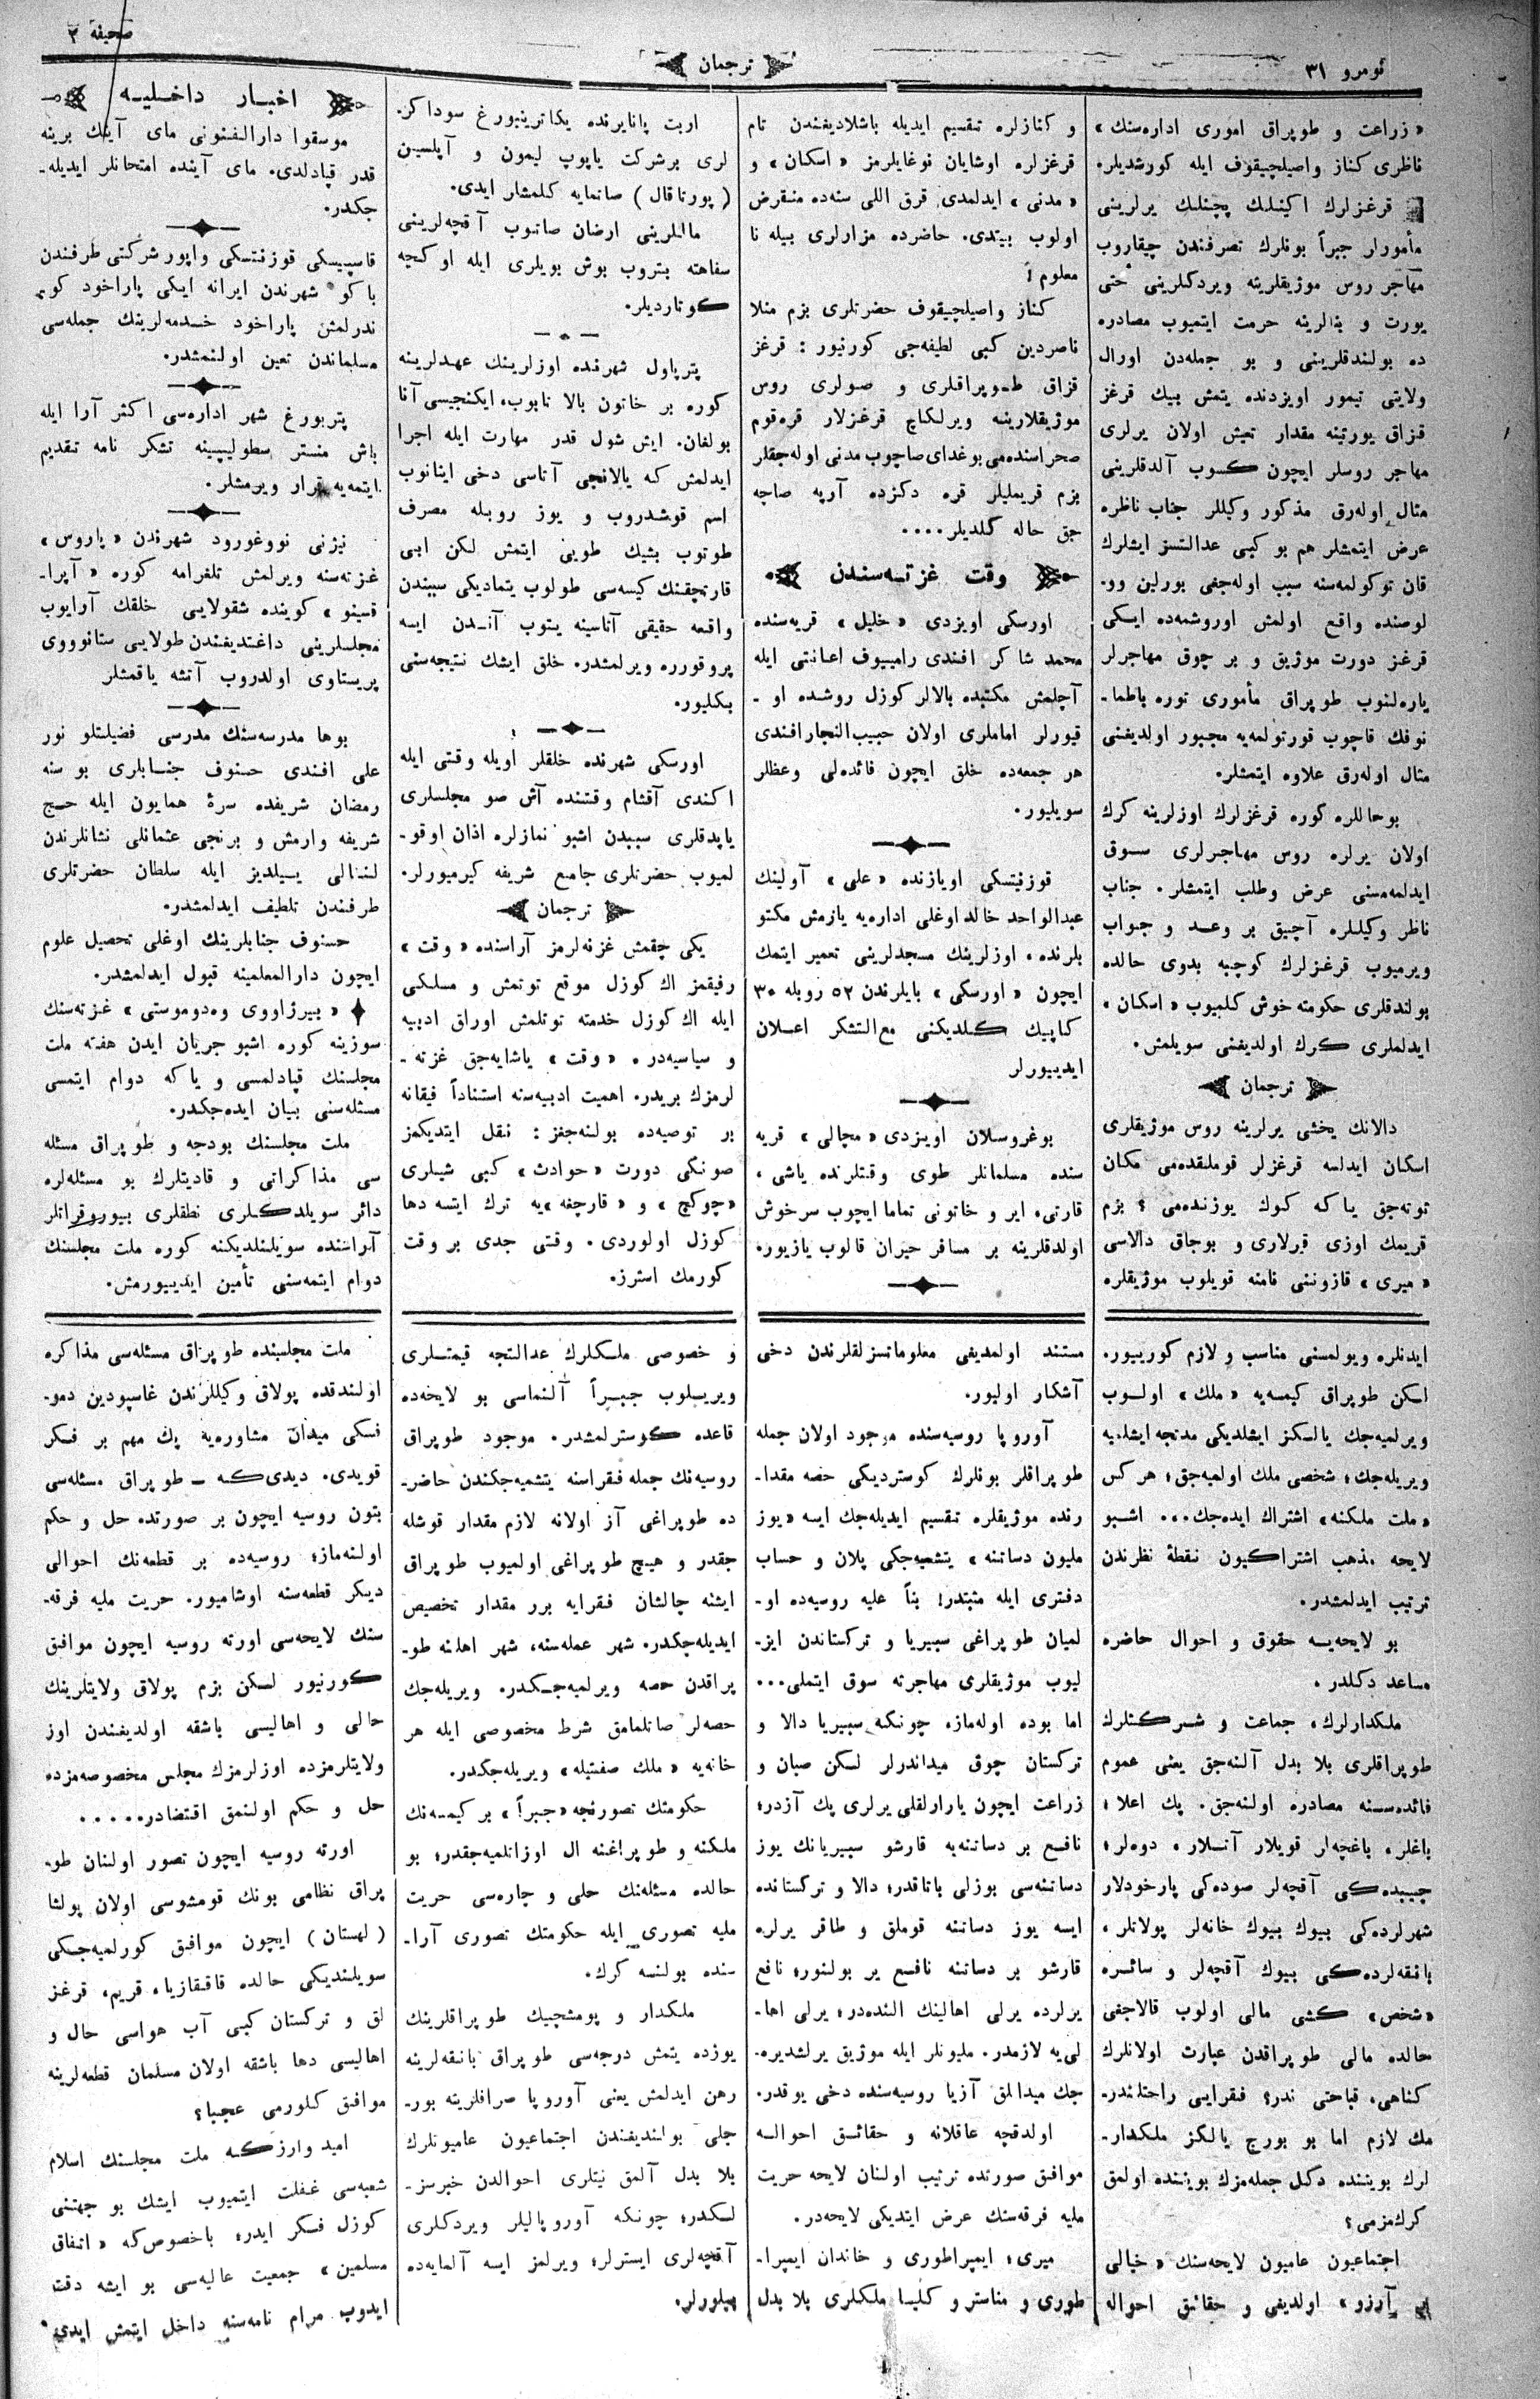 نومرو ٣١
ترجمان
صحیفه ٣
« زراعت و طوپراق اموری اداره‌سنك »
ناظری كناز واصیلچیقوف ایله كورشدیلر.
قرغزلرك اكینلك پچنلك یرلرینی
مأمورلر جبراً بونلرك تصرفندن چیقاروب
مهاجر روس موژیقلرینه ویردكلرینی حتی
یورت و بنالرینه حرمت ایتمیوب مصادره
ده بولندقلرینی و بو جمله‌دن اورال
ولایتی تیمور اویزدنده یتمش بیك قرغز
قزاق یورتینه مقدار تعیش اولان یرلری
مهاجر روسلر ایچون كسوب آلدقلرینی
مثال اوله‌رق مذكور وكیللر جناب ناظره
عرض ایتمشلر هم بو كبی عدالتسز ایشلرك
قان توكولمه‌سنه سبب اوله‌جغی بورلین وو-
لوسنده واقع اولمش اوروشمه‌ده ایكی
قرغز دورت موژیق و بر چوق مهاجرلر
یاره‌لنوب طوپراق مأموری توره باطما-
نوفك قاچوب قورتولمه‌یه مجبور اولدیغنی
مثال اوله‌رق علاوه ایتمشلر.
بوحاللره كوره قرغزلرك اوزلرینه كرك
اولان یرلره روس مهاجرلری سوق
ایدلمه‌مسنی عرض وطلب ایتمشلر. جناب
ناظر وكیللره آچیق بر وعد و جواب
ویرمیوب قرغزلرك كوچبه بدوی حالده
بولندقلری حكومته خوش كلمیوب « اسكان »
ایدلملری كرك اولدیغنی سویلمش.
ترجمان
دالانك یخشی یرلرینه روس موژیقلری
اسكان ایدلسه قرغزلر قوملقده‌می مكان
توته‌جق یاكه كوك یوزنده‌می ؟ بزم
قریمك اوزی قیرلاری و بوجاق دالاسی
« میری » قازوننی نامنه قویلوب موژیقلره
و كنازلره تقسیم ایدیله باشلادیغندن تام
قرغزلره اوشایان نوغایلرمز « اسكان » و
« مدنی » ایدلمدی قرق اللی سنه‌ده منقرض
اولوب بیتدی. حاضرده مزارلری بیله نا
معلوم !
كناز واصیلچیقوف حضرتلری بزم منلا
ناصردین كبی لطیفه‌جی كورنیور : قرغز
قزاق طوپراقلری و صولری روس
موژیقلارینه ویرلكاچ قرغزلار قره‌قوم
صحراسنده‌می بوغدای صاچوب مدنی اوله‌جقلر
بزم قریملیلر قره دكزده آرپه صاچه
جق حاله كلدیلر....
وقت غزته‌سندن
اورسكی اویزدی « خلیل » قریه‌سنده
محمد شاكر افندی رامییوف اعانتی ایله
آچلمش مكتبده بالالر كوزل روشده او-
قیورلر اماملری اولان حبیب‌النجار افندی
هر جمعه‌ده خلق ایچون فائده‌لی وعظلر
سویلیور.
قوزنیتسكی اویازنده « علی » آولینك
عبدالواحد خالد اوغلی اداره‌یه یازمش مكتو
بلرنده، اوزلرینك مسجدلرینی تعمیر ایتمك
ایچون « اورسكی » بایلرندن ٥٢ روبله ٣٠
كاپیك كلدیكنی مع‌التشكر اعلان
ایدییورلر
بوغروسلان اویزدی « مچالی » قریه
سنده مسلمانلر طوی وقتلرنده یاشی،
قارتی، ایر و خاتونی تماما ایچوب سرخوش
اولدقلرینه بر مسافر حیران قالوب یازیور.
اربت پانایرنده یكاترینبورغ سوداكر-
لری برشركت یاپوپ لیمون و آپلسین
( پورتاقال ) صاتمایه كلمشلر ایدی.
ماللرینی ارضان صاتوب آقچه‌لرینی
سفاهته بتروب بوش بویلری ایله اوكچه
كوتاردیلر.
پترپاول شهرنده اوزلرینك عهدلرینه
كوره بر خاتون بالا تابوب، ایكنجیسی آنا
بولغان. ایش شول قدر مهارت ایله اجرا
ایدلمش كه یالانجی آتاسی دخی اینانوب
اسم قوشدروب و یوز روبله مصرف
طوتوب بشیك طویی ایتمش لكن ابی
قارتچقنك كیسه‌سی طولوب یتمادیكی سببندن
واقعه حقیقی آتاسینه یتوب آندن ایسه
پروقورره ویرلمشدر. خلق ایشك نتیجه‌سنی
بكلیور.
اورسكی شهرنده خلقلر اویله وقتی ایله
اكندی آقشام وقتنده آش صو مجلسلری
یاپدقلری سببدن اشبو نمازلره اذان اوقو-
لمیوب حضرتلری جامع شریفه كیرمیورلر.
ترجمان
یكی چقمش غزته‌لرمز آراسنده « وقت »
رفیقمز اك كوزل موقع توتمش و مسلكی
ایله اك كوزل خدمته توتلمش اوراق ادبیه
و سیاسیه‌در. « وقت » یاشایه‌جق غزته-
لرمزك بریدر. اهمیت ادبیه‌سنه استناداً فیقانه
بر توصیه‌ده بولنه‌جغز : نقل ایتدیكمز
صونكی دورت « حوادث » كبی شیلری
« چوكچ » و « قارچغه »یه ترك ایتسه دها
كوزل اولوردی. وقتی جدی بر وقت
كورمك استرز.
اخبار داخلیه
موسقوا دارالفنونی مای آینك برینه
قدر قپادلدی. مای آینده امتحانلر ایدیله-
جكدر.
قاسپیسكی قوزنتسكی واپور شركتی طرفندن
باكو شهرندن ایرانه ایكی پاراخود كو-
ندرلمش پاراخود خدمه‌لرینك جمله‌سی
مسلماندن تعین اولنمشدر.
پتربورغ شهر اداره‌سی اكثر آرا ایله
باش منستر سطولیپینه تشكر نامه تقدیم
ایتمه‌یه قرار ویرمشلر.
نیژنی نووغورود شهرندن « پاروس »
غزته‌سنه ویرلمش تلغرامه كوره « آپرا-
قسینو » كوینده شقولایی خلقك آرایوب
مجلسلرینی داغتدیغندن طولایی ستانوووی
پریستاوی اولدروب آتشه یاقمشلر
بوها مدرسه‌سنك مدرسی فضیلتلو نور
علی افندی حسنوف جنابلری بو سنه
رمضان شریفده سرهٔ همایون ایله حج
شریفه وارمش و برنجی عثمانلی نشانلرندن
لنتالی ییلدیز ایله سلطان حضرتلری
طرفندن تلطیف ایدلمشدر.
حسنوف جنابلرینك اوغلی تحصیل علوم
ایچون دارالمعلمینه قبول ایدلمشدر.
« بیرژاووی وه‌دوموستی » غزته‌سنك
سوزینه كوره اشبو جریان ایدن هفته ملت
مجلسنك قپادلمسی و یاكه دوام ایتمسی
مسئله‌سنی بیان ایده‌جكدر.
ملت مجلسنك بودجه و طوپراق مسئله
سی مذاكراتی و قادیتلرك بو مسئله‌لره
دائر سویلدكلری نطقلری بیوروقراتلر
آراسنده سویلنلدیكنه كوره ملت مجلسنك
دوام ایتمه‌سنی تأمین ایدییورمش.
ایدنلره ویولمسنی مناسب و لازم كورییور.
لكن طوپراق كیمسه‌یه « ملك » اولوب
ویرلمیه‌جك یالكز ایشلدیكی مدتجه ایشله‌یه
ویریله‌جك؛ شخصی ملك اولمیه‌جق؛ هركس
« ملت ملكنه » اشتراك ایده‌جك... اشبو
لایحه مذهب اشتراكیون نقطهٔ نظرندن
ترتیب ایدلمشدر.
بو لایحه‌یسه حقوق و احوال حاضره
مساعد دكلدر.
ملكدارلرك، جماعت و شركتلرك
طوپراقلری بلا بدل آلنه‌جق یعنی عموم
فائده‌سنه مصادره اولنه‌جق. پك اعلا؛
باغلر، باغچه‌لر قویلار آتلار، دوه‌لر؛
جیبده‌كی آقچه‌لر صوده‌كی پارخودلار
شهرلرده‌كی بیوك بیوك خانه‌لر پولاتلر،
بانقه‌لرده‌كی بیوك آقچه‌لر و سائره
« شخص » كشی مالی اولوب قالاجغی
حالده مالی طوپراقدن عبارت اولانلرك
كناهی، قباحتی ندر؟ فقرایی راحتلندر-
مك لازم اما بو بورج یالكز ملكدار-
لرك بوینده دكل جمله‌مزك بویننده اولمق
كرك‌مزمی؟
اجتماعیون عامیون لایحه‌سنك « خیالی
آرزو » اولدیغی و حقائق احواله
مستند اولمدیغی معلوماتسزلقلرندن دخی
آشكار اولیور.
آوروپا روسیه‌سنده موجود اولان جمله
طوپراقلر بونلرك كوستردیكی حصه مقدا-
رنده موژیقلره تقسیم ایدیله‌جك ایسه « یوز
ملیون دساتنه » یتشمیه‌جكی پلان و حساب
دفتری ایله مثبتدر! بنأ علیه روسیه‌ده او-
لمیان طوپراغی سیبریا و تركستاندن ایز-
لیوب موژیقلری مهاجرته سوق ایتملی...
اما بوده اوله‌ماز، چونكه سیبریا دالا و
تركستان چوق میداندرلر لكن صبان و
زراعت ایچون یارارلقلی یرلری پك آزدر؛
نافع بر دساتنه‌یه قارشو سیبریانك یوز
دساتنه‌سی بوزلی باتاقدر؛ دالا و تركستانده
ایسه یوز دساتنه قوملق و طاقر یرلره
قارشو بر دساتنه نافع یر بولنور؛ نافع
یرلرده یرلی اهالینك النده‌در؛ یرلی اها-
لی‌یه لازمدر. ملیونلر ایله موژیق یرلشدیره-
جك میدانلق آزیا روسیه‌سنده دخی یوقدر.
اولدقچه عاقلانه و حقائق احواله
موافق صورتده ترتیب اولنان لایحه حریت
ملیه فرقه‌سنك عرض ایتدیكی لایحه‌در.
میری؛ ایمپراطوری و خاندان ایمپرا-
طوری و مناستر و كلیسا ملكلری بلا بدل
و خصوصی ملكلرك عدالتجه قیمتلری
ویریلوب جبراً آلنماسی بو لایحه‌ده
قاعده كوسترلمشدر. موجود طوپراق
روسیه‌نك جمله فقراسنه یتشمیه‌جكندن حاضر-
ده طوپراغی آز اولانه لازم مقدار قوشله
جقدر و هیچ طوپراغی اولمیوب طوپراق
ایشنه چالشان فقرایه برر مقدار تخصیص
ایدیله‌جكدر. شهر عمله‌سنه، شهر اهلنه طو-
پراقدن حصه ویرلمیه‌جكدر. ویریله‌جك
حصه‌لر صاتلمامق شرط مخصوصی ایله هر
خانه‌یه « ملك صفتیله » ویریله‌جكدر.
حكومتك تصورنجه « جبراً » بر كیمسه‌نك
ملكنه و طوپراغنه ال اوزاتلمیه‌جقدر؛ بو
حالده مسئله‌نك حلی و چاره‌سی حریت
ملیه تصوری ایله حكومتك تصوری آرا-
سنده بولنسه كرك.
ملكدار و پومشچیك طوپراقلرینك
یوزده یتمش درجه‌سی طوپراق بانقه‌لرینه
رهن ایدلمش یعنی آوروپا صرافلرینه بور-
جلی بولندیغندن اجتماعیون عامیونلرك
بلا بدل آلمق نیتلری احوالدن خبرسز-
لكدر؛ چونكه آوروپالیلر ویردكلری
آقچه‌لری ایسترلر؛ ویرلمز ایسه آلمایه‌ده
بیلورلر.
ملت مجلسنده طوپراق مسئله‌سی مذاكره
اولندقده پولاق وكیللرندن غاسپودین دمو-
فسكی میدان مشاوره‌یه پك مهم بر فكر
قویدی. دیدی‌كه – طوپراق مسئله‌سی
بتون روسیه ایچون بر صورتده حل و حكم
اولنه‌ماز؛ روسیه‌ده بر قطعه‌نك احوالی
دیكر قطعه‌سنه اوشامیور. حریت ملیه فرقه-
سنك لایحه‌سی اورته روسیه ایچون موافق
كورنیور لكن بزم پولاق ولایتلرینك
حالی و اهالیسی باشقه اولدیغندن اوز
ولایتلرمزده اوزلرمزك مجلس مخصوصه‌مزده
حل و حكم اولنمق اقتضادر.....
اورته روسیه ایچون تصور اولنان طو-
پراق نظامی بونك قومشوسی اولان پولشا
( لهستان ) ایچون موافق كورلمیه‌جكی
سویلندیكی حالده قافقازیا، قریم، قرغز
لق و تركستان كبی آب هواسی حال و
اهالیسی دها باشقه اولان مسلمان قطعه‌لرینه
موافق كلورمی عجبا؟
امید وارزكه ملت مجلسنك اسلام
شعبه‌سی غفلت ایتمیوب ایشك بو جهتنی
كوزل فكر ایدر؛ باخصوص‌كه « اتفاق
مسلمین » جمعیت عالیه‌سی بو ایشه دقت
ایدوپ مرام نامه‌سنه داخل ایتمش ایدی.